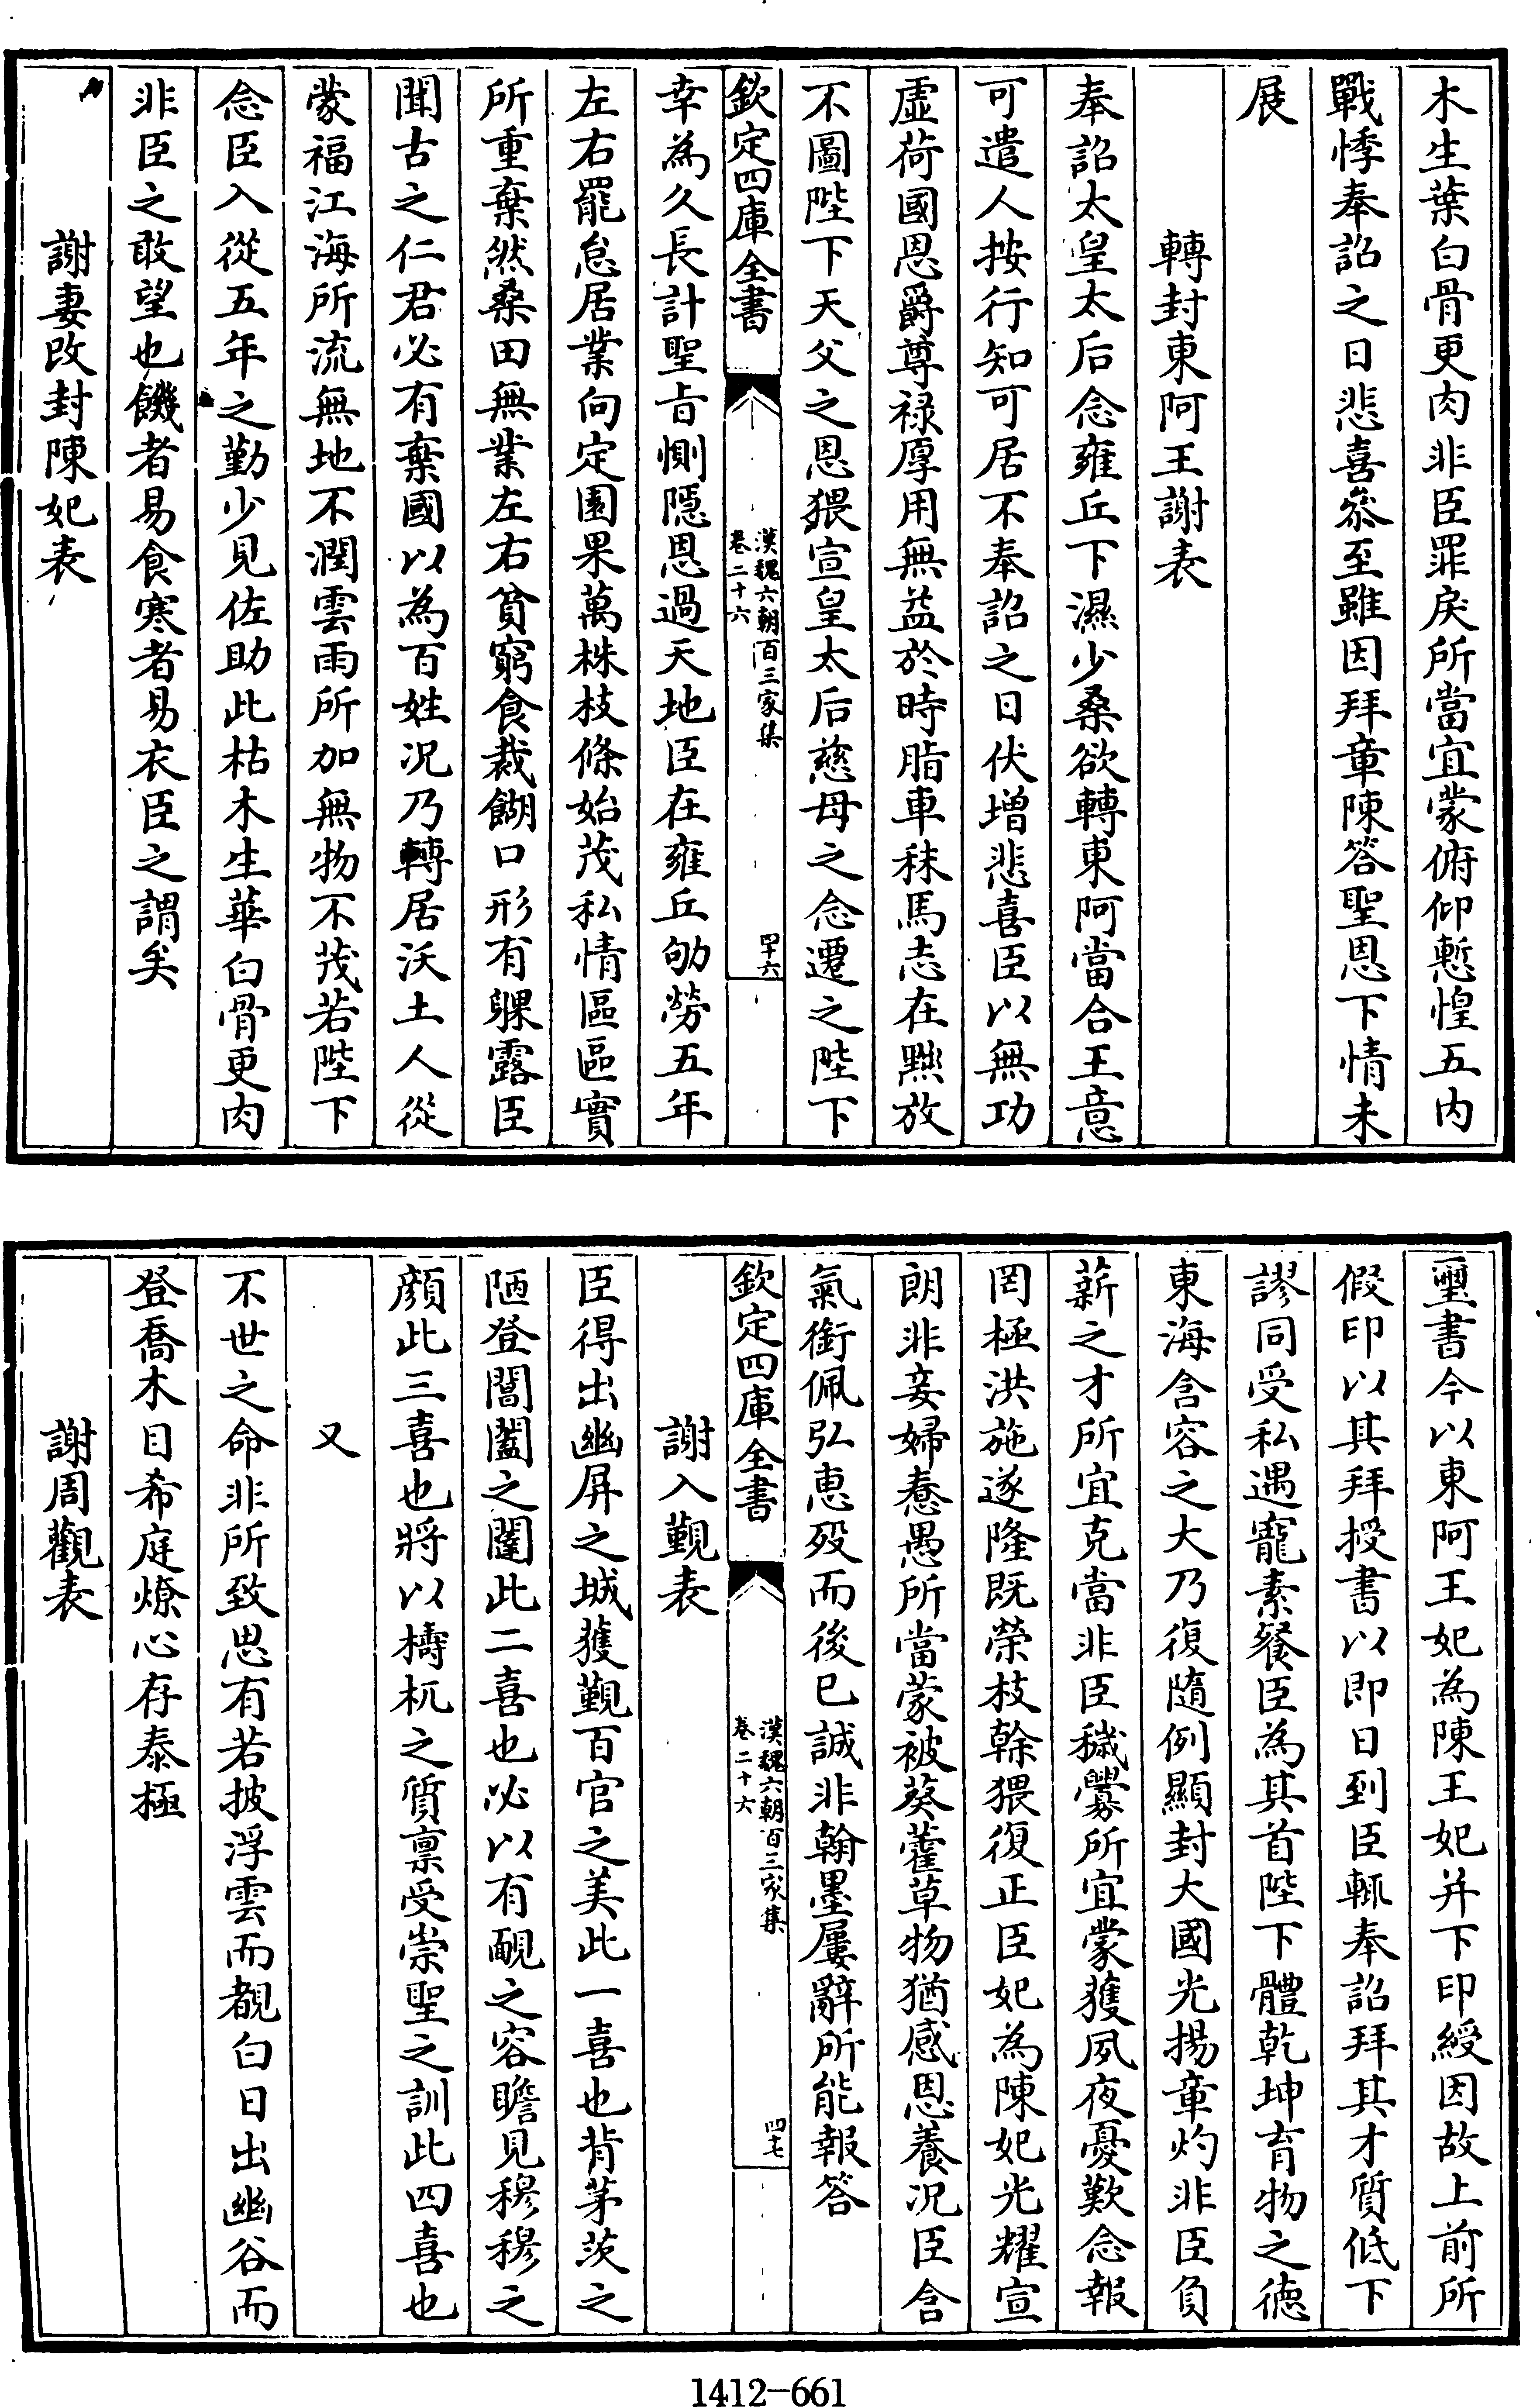 木生葉白骨更肉非臣罪戾所當宜蒙俯仰慙惶五內
戰悸奉詔之日悲喜叅至雖因拜章陳答聖恩下情未
展
轉封東阿王謝表
奉詔太皇太后念雍丘下濕少桑欲轉東阿當合王意
可遣人按行知可居不奉詔之日伏增悲喜臣以無功
虛荷國恩爵尊祿厚用無益於時脂車秣馬志在黜放
不圖陛下天父之恩猥宣皇太后慈母之念遷之陛下
欽定四庫全書
漢魏六朝百三家集
卷二十六
四十六
幸為久長計聖旨惻隱恩過天地臣在雍丘劬勞五年
左右罷怠居業向定園果萬株枝條始茂私情區區實
所重棄然桑田無業左右貧窮食裁餬口形有躶露臣
聞古之仁君必有棄國以為百姓況乃轉居沃土人從
蒙福江海所流無地不潤雲雨所加無物不茂若陛下
念臣入從五年之勤少見佐助此枯木生華白骨更肉
非臣之敢望也饑者易食寒者易衣臣之謂矣
謝妻改封陳妃表
璽書今以東阿王妃為陳王妃并下印綬因故上前所
假印以其拜授書以即日到臣輒奉詔拜其才質低下
謬同受私遇寵素餐臣為其首陛下體乾坤育物之德
東海含容之大乃復隨例顯封大國光揚章灼非臣負
薪之才所宜克當非臣穢釁所宜蒙獲夙夜憂歎念報
罔極洪施遂隆既榮枝幹猥復正臣妃為陳妃光耀宣
朗非妾婦惷愚所當蒙被葵藿草物猶感恩養况臣含
氣銜佩弘惠殁而後已誠非翰墨屢辭所能報答
欽定四庫全書
漢魏六朝百三家集
卷二十六
四十七
謝入覲表
臣得出幽屏之城獲覲百官之美此一喜也背茅茨之
陋登閶闔之闥此二喜也必以有靦之容瞻見穆穆之
顏此三喜也將以檮杌之質禀受崇聖之訓此四喜也
又
不世之命非所致思有若披浮雲而覩白日出幽谷而
登喬木目希庭燎心存泰極
謝周觀表
1412-661